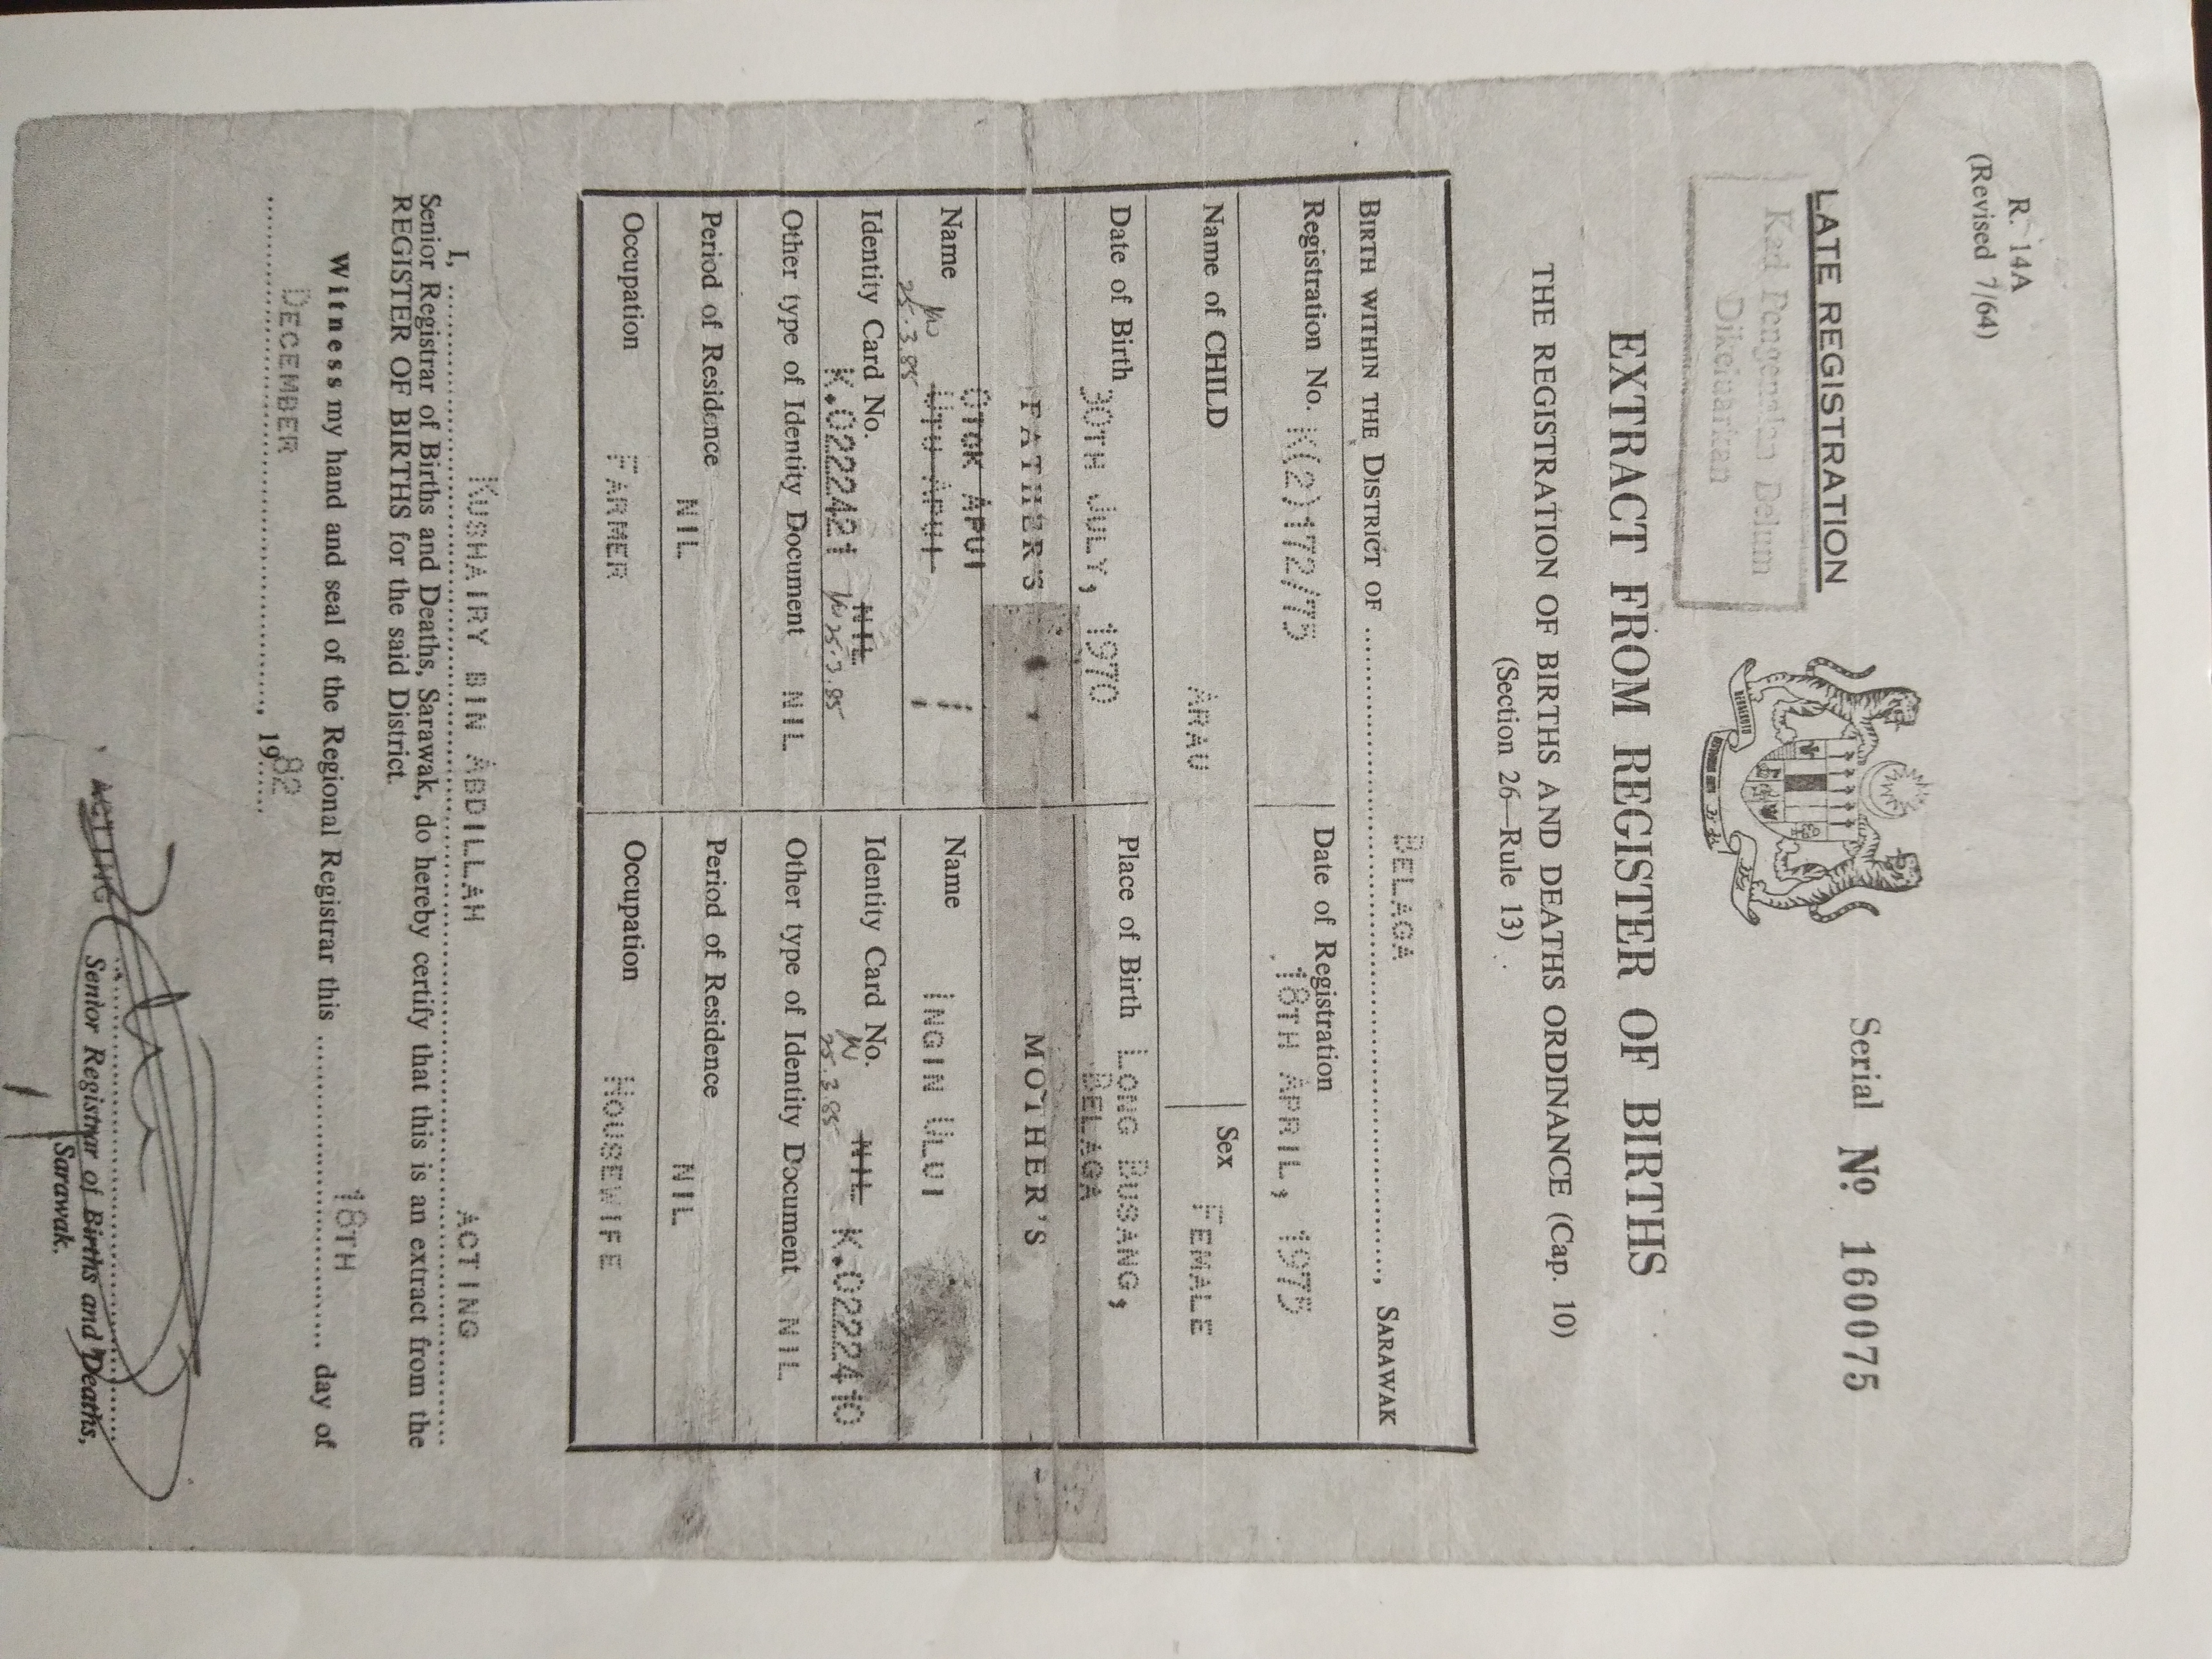 R. 14A
(Revised 7/64)
LATE REGISTRATION
Serial No 160075
Kad Pengenalan Belum
Dikeluarkan
EXTRACT FROM REGISTER OF BIRTHS
THE REGISTRATION OF BIRTHS AND DEATHS ORDINANCE (Cap. 10)
(Section 26—Rule 13)
BIRTH WITHIN THE DISTRICT OF BELAGA, SARAWAK
Registration No. K(2)172/75 Date of Registration 18TH APRIL, 1975
Name of CHILD ARAU Sex FEMALE
Date of Birth 30TH JULY, 1970 Place of Birth LONG BUSANG,
BELAGA
FATHER'S MOTHER'S
APUI
Name UTU APUI Name INGIN ULUI
25.3.85
Identity Card No. NIL Identity Card No. NIL K.0222410
K.0222421 25.3.85 25.3.85
Other type of Identity Document NIL Other type of Identity Document NIL
Period of Residence NIL Period of Residence NIL
Occupation FARMER Occupation HOUSEWIFE
I, KUSHAIRY BIN ABDILLAH ACTING
Senior Registrar of Births and Deaths, Sarawak, do hereby certify that this is an extract from the
REGISTER OF BIRTHS for the said District.
Witness my hand and seal of the Regional Registrar this 18TH day of
DECEMBER, 1982
ACTING
Senior Registrar of Births and Deaths,
Sarawak.